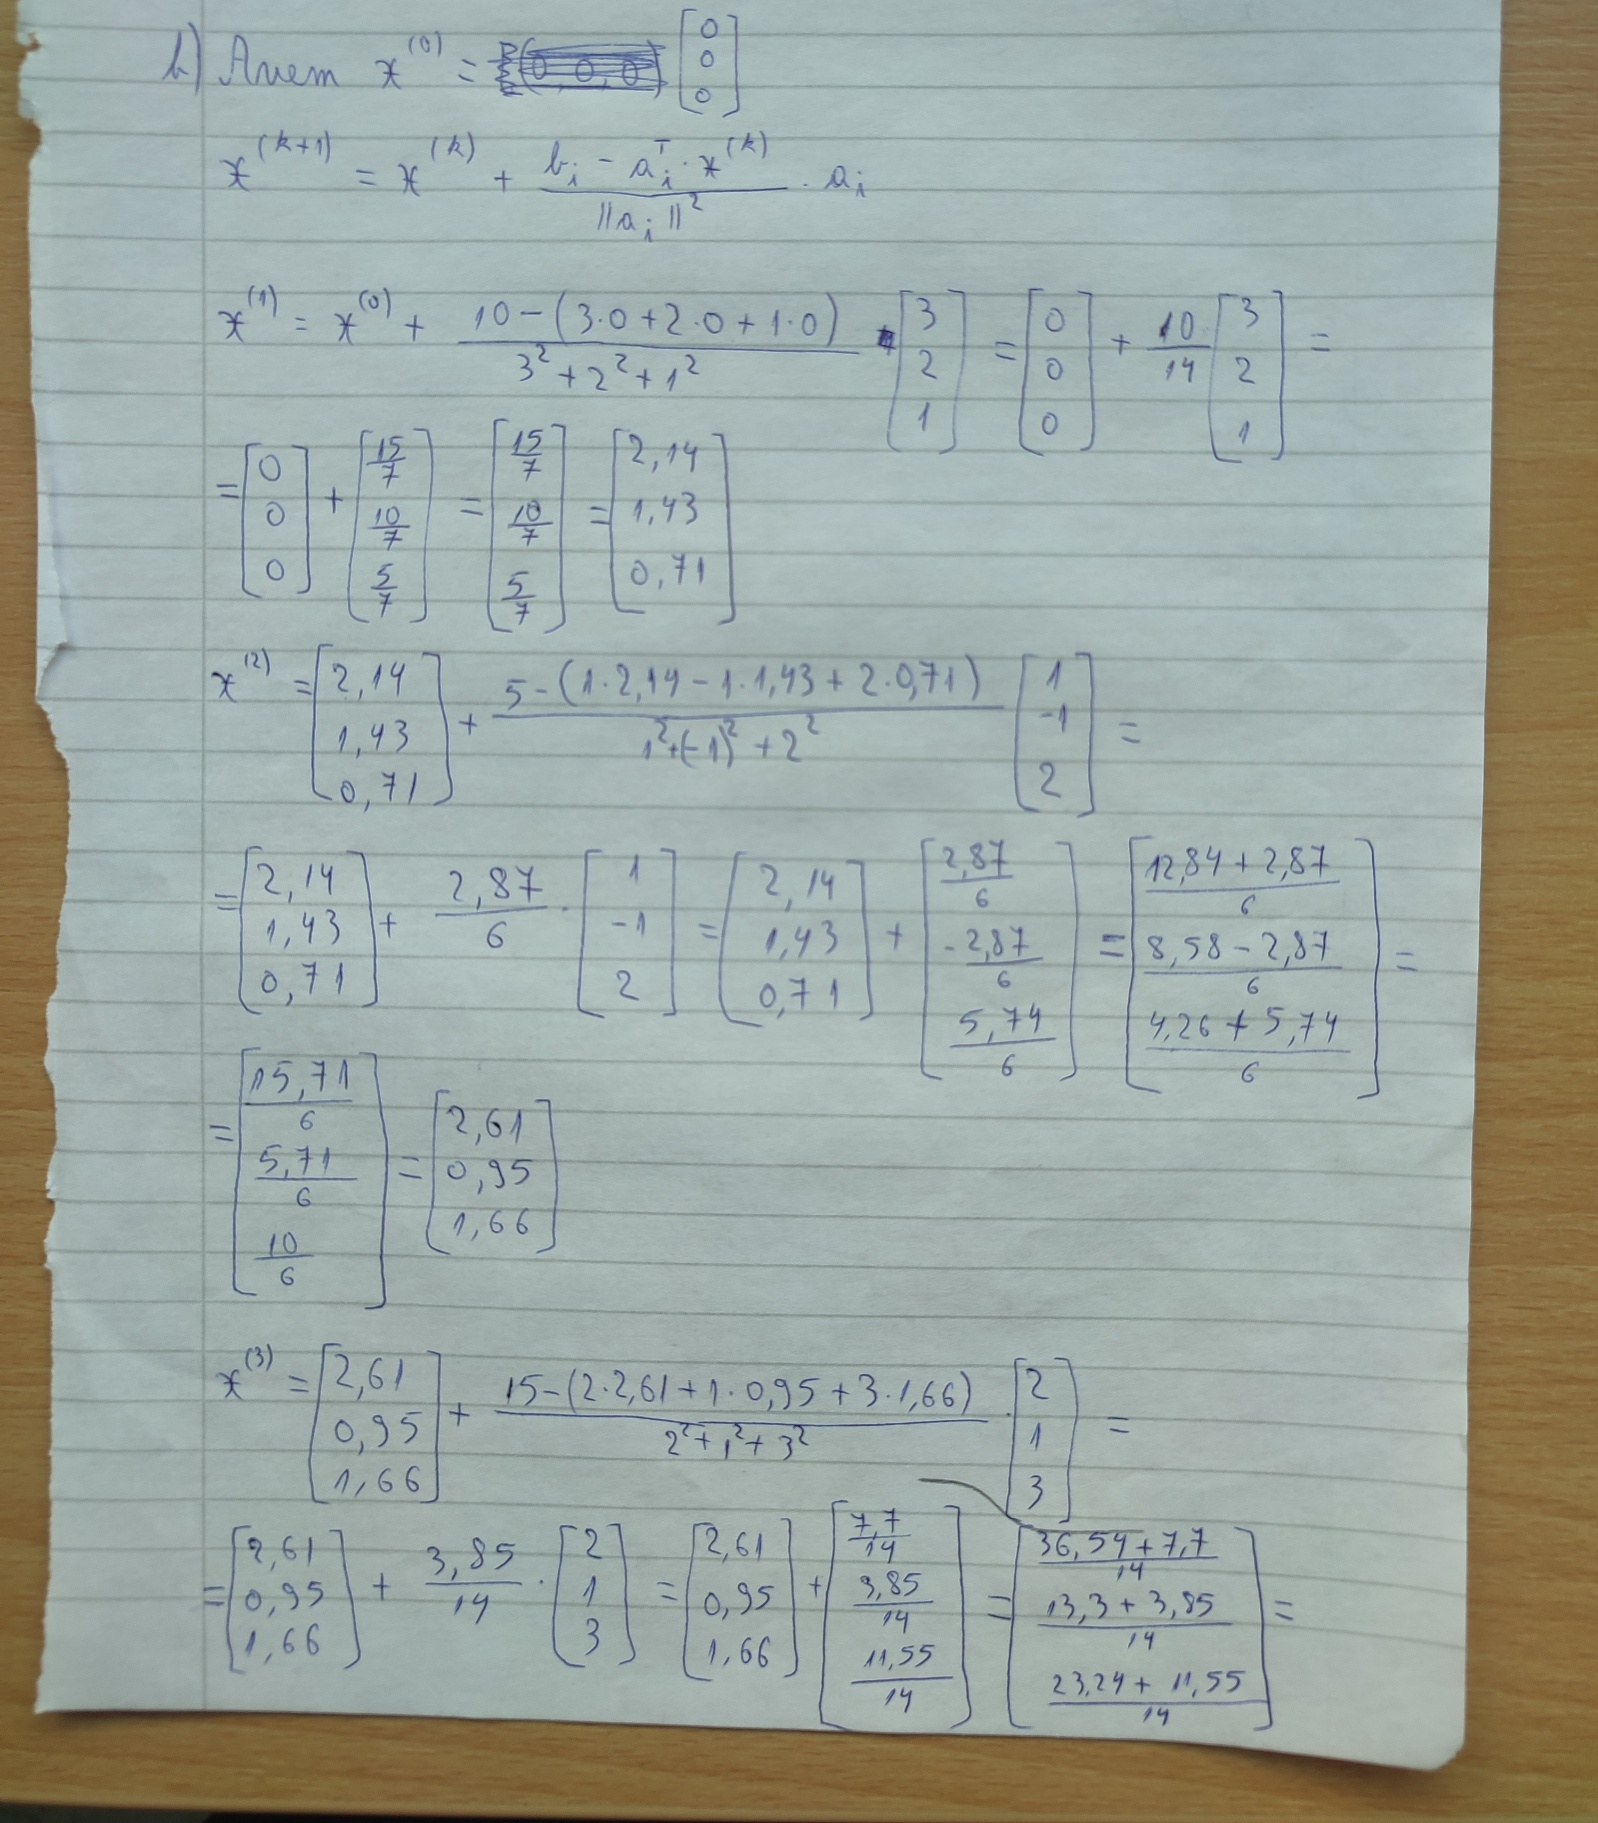 b) Avem x^(0) = [0 0 0]
x^(k+1) = x^(k) + (b_i - a_i^T · x^(k)) / ||a_i||^2 · a_i
x^(1) = x^(0) + (10 - (3·0 + 2·0 + 1·0)) / (3^2 + 2^2 + 1^2) · [3 2 1] = [0 0 0] + 10/14 [3 2 1] =
= [0 0 0] + [15/7 10/7 5/7] = [15/7 10/7 5/7] = [2,14 1,43 0,71]
x^(2) = [2,14 1,43 0,71] + (5 - (1·2,14 - 1·1,43 + 2·0,71)) / (1^2 + (-1)^2 + 2^2) [1 -1 2] =
= [2,14 1,43 0,71] + 2,87/6 · [1 -1 2] = [2,14 1,43 0,71] + [2,87/6 -2,87/6 5,74/6] = [(12,84 + 2,87)/6 (8,58 - 2,87)/6 (4,26 + 5,74)/6] =
= [15,71/6 5,71/6 10/6] = [2,61 0,95 1,66]
x^(3) = [2,61 0,95 1,66] + (15 - (2·2,61 + 1·0,95 + 3·1,66)) / (2^2 + 1^2 + 3^2) · [2 1 3] =
= [2,61 0,95 1,66] + 3,85/14 · [2 1 3] = [2,61 0,95 1,66] + [7,7/14 3,85/14 11,55/14] = [(36,54 + 7,7)/14 (13,3 + 3,85)/14 (23,24 + 11,55)/14] =